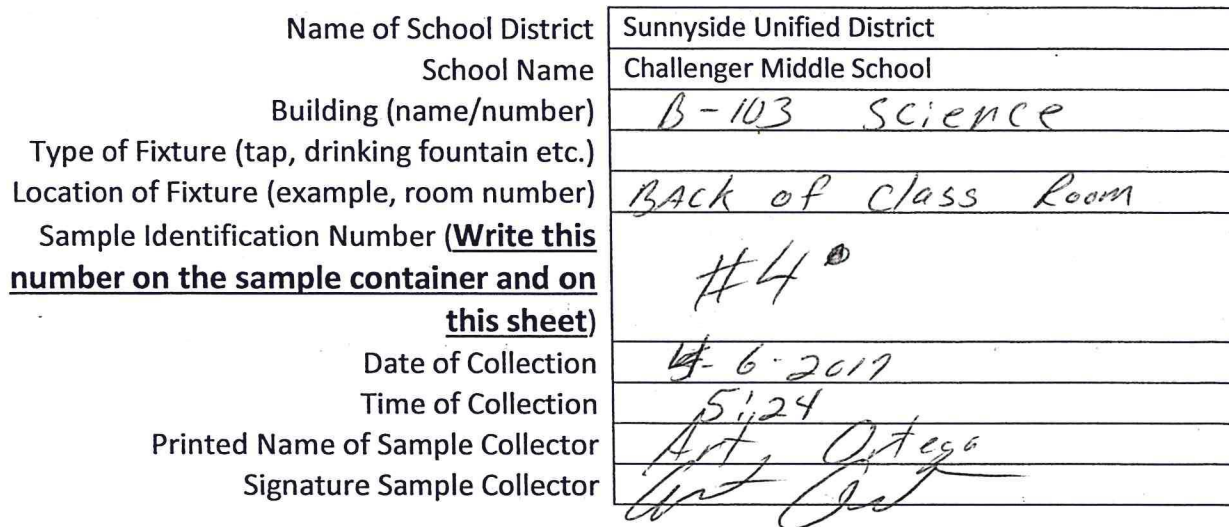 Name of School District Sunnyside Unified District
School Name Challenger Middle School
Building (name/number) B-103 Science
Type of Fixture (tap, drinking fountain etc.)
Location of Fixture (example, room number) BACK of Class Room
Sample Identification Number (Write this
number on the sample container and on
this sheet)
#4
Date of Collection 4-6-2017
Time of Collection 5:24
Printed Name of Sample Collector Art Ortega
Signature Sample Collector